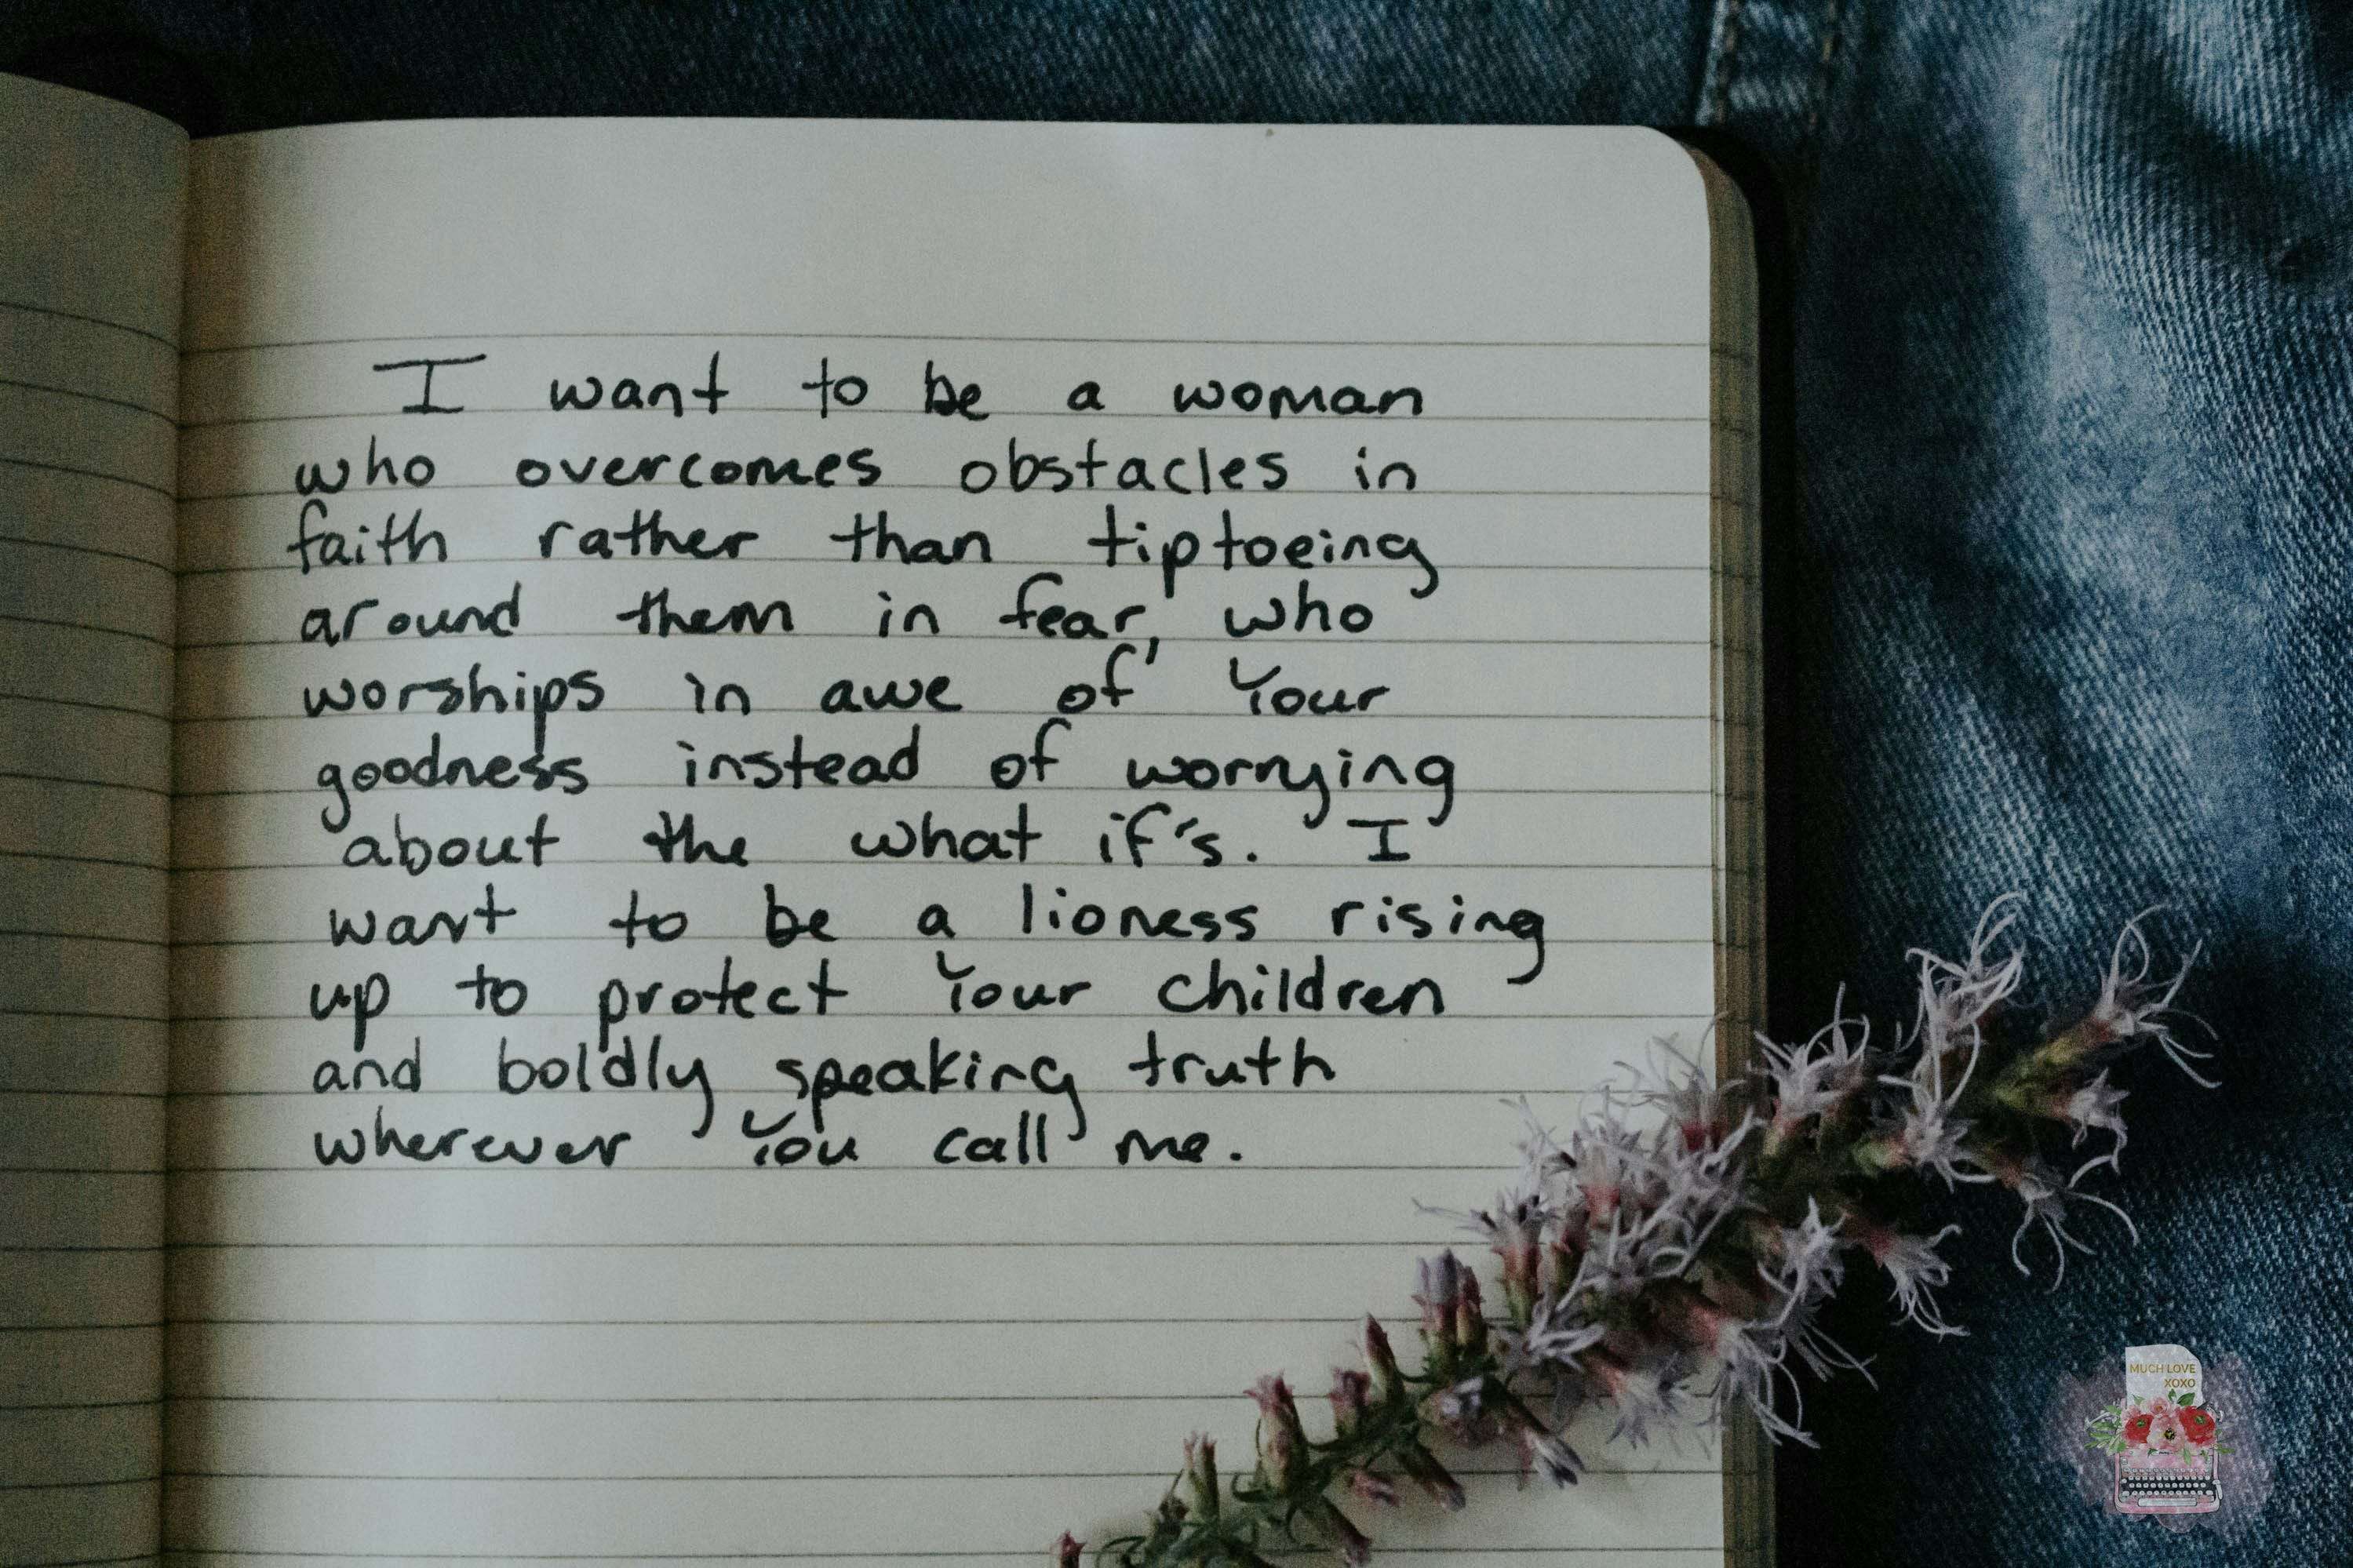 I want to be a woman
who overcomes obstacles in
faith rather than tiptoeing
around them in fear, who
worships in awe of Your
goodness instead of worrying
about the what if's. I
want to be a lioness rising
up to protect Your children
and boldly speaking truth
wherever You call me.
MUCH LOVE
XOXO